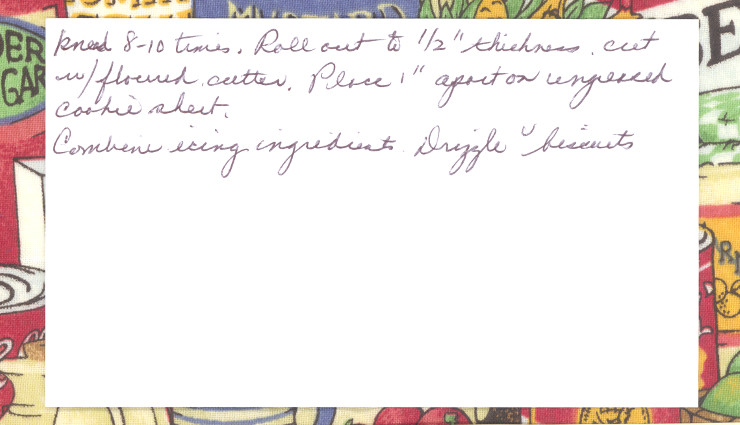 MUSTARD
DER
GAR
BE
knead 8-10 times. Roll out to 1/2" thickness. cut
w/floured cutter. Place 1" apart on ungreased
cookie sheet.
Combine icing ingredients. Drizzle biscuits